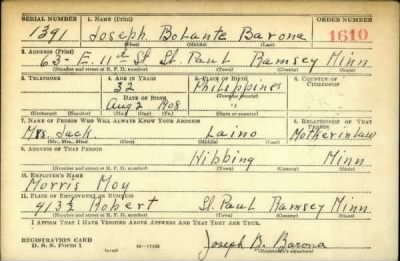 SERIAL NUMBER 1. NAME (Print) ORDER NUMBER
1391 Joseph Bolante Barona 1610
(First) (Middle) (Last)
2. ADDRESS (Print)
63- E. 11th St St. Paul Ramsey Minn
(Number and street or R. F. D. number) (Town) (County) (State)
3. TELEPHONE 4. AGE IN YEARS 5. PLACE OF BIRTH 6. COUNTRY OF CITIZENSHIP
32 Philippines
(Town or county)
DATE OF BIRTH
Aug 2 1908
(Exchange) (Number) (Mo.) (Day) (Yr.) (State or country)
7. NAME OF PERSON WHO WILL ALWAYS KNOW YOUR ADDRESS 8. RELATIONSHIP OF THAT PERSON
Mrs. Jack Laino Motherinlaw
(Mr., Mrs., Miss) (First) (Middle) (Last)
9. ADDRESS OF THAT PERSON
Hibbing Minn
(Number and street or R. F. D. number) (Town) (County) (State)
10. EMPLOYER'S NAME
Morris Moy
11. PLACE OF EMPLOYMENT OR BUSINESS
413½ Robert St. Paul Ramsey Minn
(Number and street or R. F. D. number) (Town) (County) (State)
I AFFIRM THAT I HAVE VERIFIED ABOVE ANSWERS AND THAT THEY ARE TRUE.
REGISTRATION CARD
D. S. S. Form 1 Joseph B. Barona
(Registrant's signature)